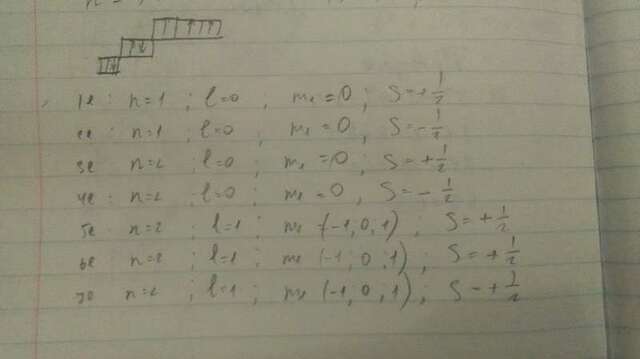 1e : n=1 ; l=0 , m₁=0 ; S=+1/2
2e : n=1 ; l=0 , m₁=0 ; S=-1/2
3e : n=2 ; l=0 ; m₁=0 ; S=+1/2
4e : n=2 ; l=0 ; m₁=0 ; S=-1/2
5e n=2 ; l=1 ; m₁=(-1,0,1) ; S=+1/2
6e n=2 ; l=1 ; m₁(-1;0;1) ; S=+1/2
7e n=2 ; l=1 ; m₁(-1;0;1) ; S=+1/2